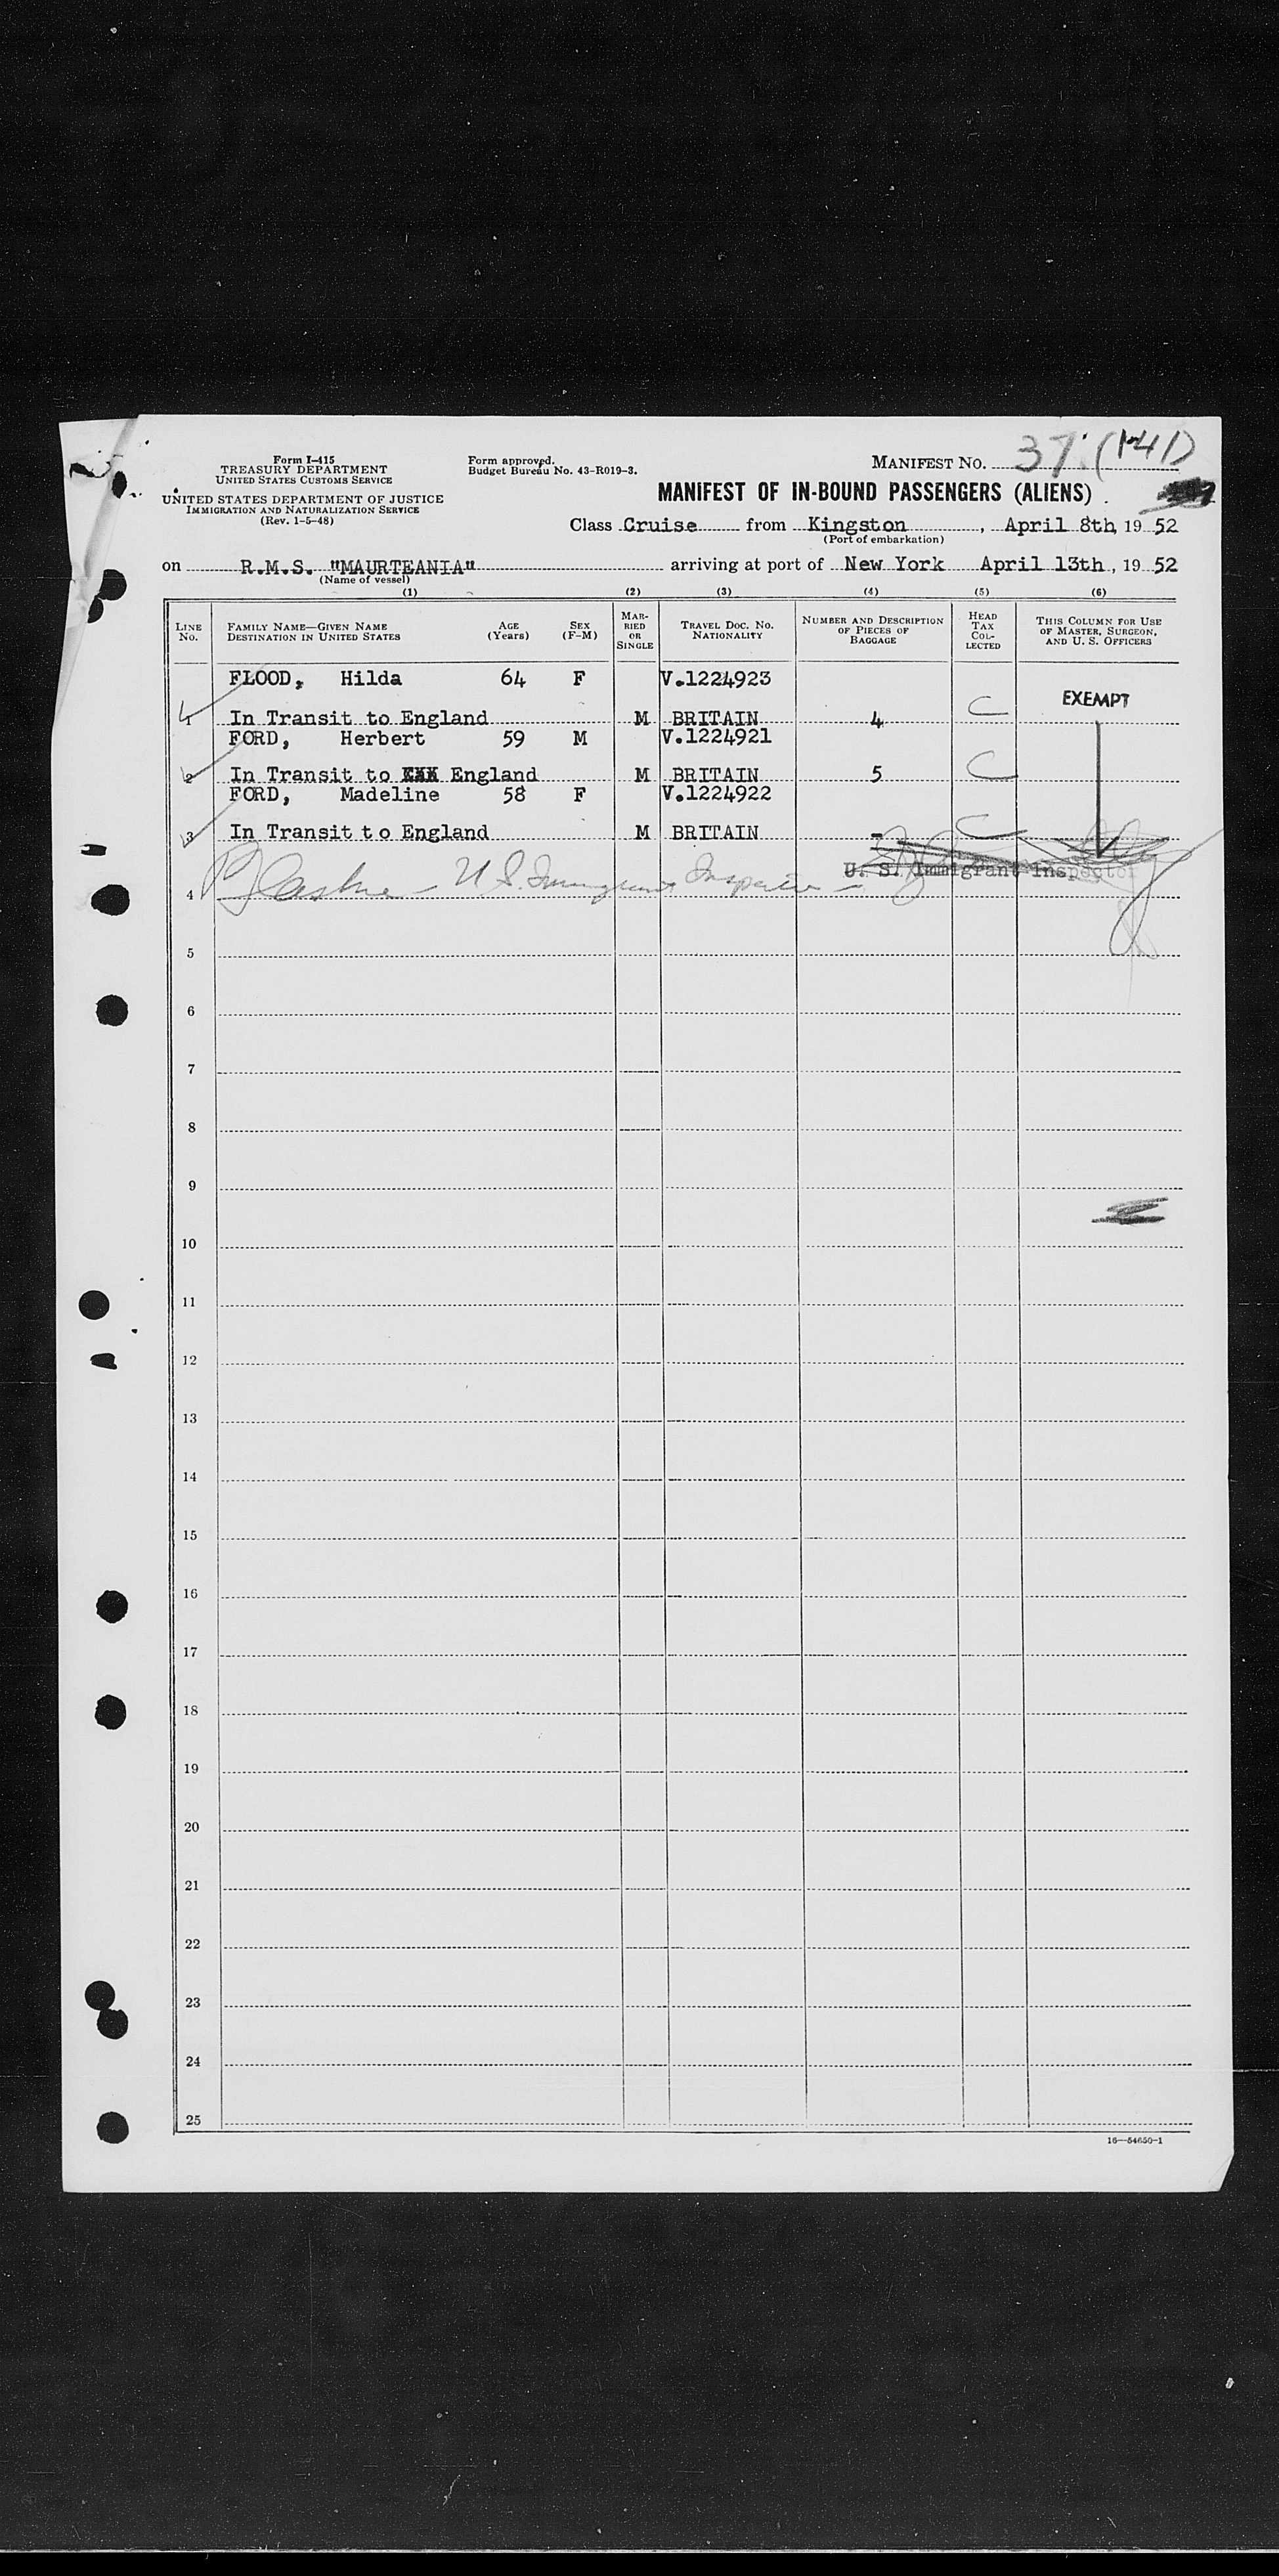 Form I-415
TREASURY DEPARTMENT
UNITED STATES CUSTOMS SERVICE
UNITED STATES DEPARTMENT OF JUSTICE
IMMIGRATION AND NATURALIZATION SERVICE
(Rev. 1-5-48)
Form approved.
Budget Bureau No. 43-R019-3.
MANIFEST NO. 37 (141)
MANIFEST OF IN-BOUND PASSENGERS (ALIENS)
Class Cruise from Kingston, April 8th, 19 52
(Port of embarkation)
on R.M.S. "MAURTEANIA" arriving at port of New York April 13th, 19 52
(Name of vessel)
(1) (2) (3) (4) (5) (6)
LINE NO. FAMILY NAME—GIVEN NAME DESTINATION IN UNITED STATES AGE (Years) SEX (F-M) MARRIED OR SINGLE TRAVEL DOC. NO. NATIONALITY NUMBER AND DESCRIPTION OF PIECES OF BAGGAGE HEAD TAX COLLECTED THIS COLUMN FOR USE OF MASTER, SURGEON, AND U. S. OFFICERS
FLOOD, Hilda 64 F V.1224923
EXEMPT
1 In Transit to England M BRITAIN 4 C
FORD, Herbert 59 M V.1224921
2 In Transit to XXX England M BRITAIN 5 C
FORD, Madeline 58 F V.1224922
3 In Transit to England M BRITAIN - C
U. S. Immigrant Inspector
4 U.S. Immigrant Inspector
5
6
7
8
9
10
11
12
13
14
15
16
17
18
19
20
21
22
23
24
25
16—54650-1